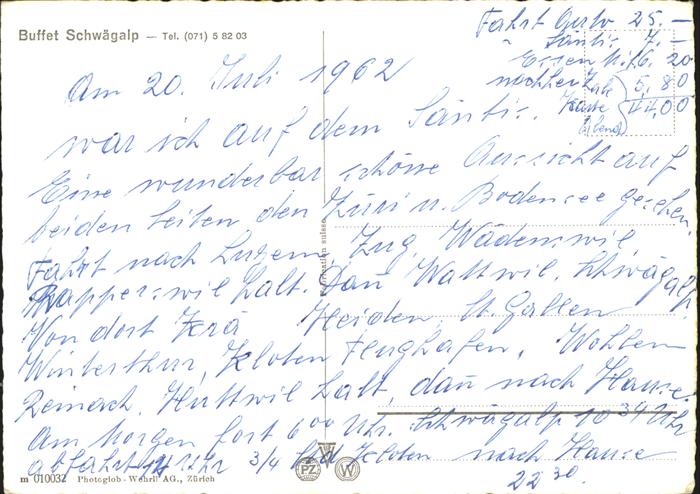 Buffet Schwägalp — Tel. (071) 5 82 03
Fahrt Auto 25.—
" Säntis 7.—
Essen Mi. 6. 20
nachher 5. 80
Karte 44.00
Abend
Am 20. Juli 1962
war ich auf dem Säntis.
Eine wunderbar schöne Aussicht auf
beiden Seiten den Züri u. Bodensee gesehen.
Fahrt nach Luzern, Zug, Wädenswil,
Rapperswil halt. Dan Wattwil, Schwägalp
Von dort Heiden, St. Gallen
Winterthur, Kloten Flughafen, Wohlen
Reinach, Huttwil halt, dan̄ nach Hause.
Am Morgen fort 6 00 Uhr. Schwägalp 10 34 Uhr
abfahrt Uhr 3/4 Kloten nach Hause
22 30.
m 010032 Photoglob-Wehrli AG., Zürich
PZ W